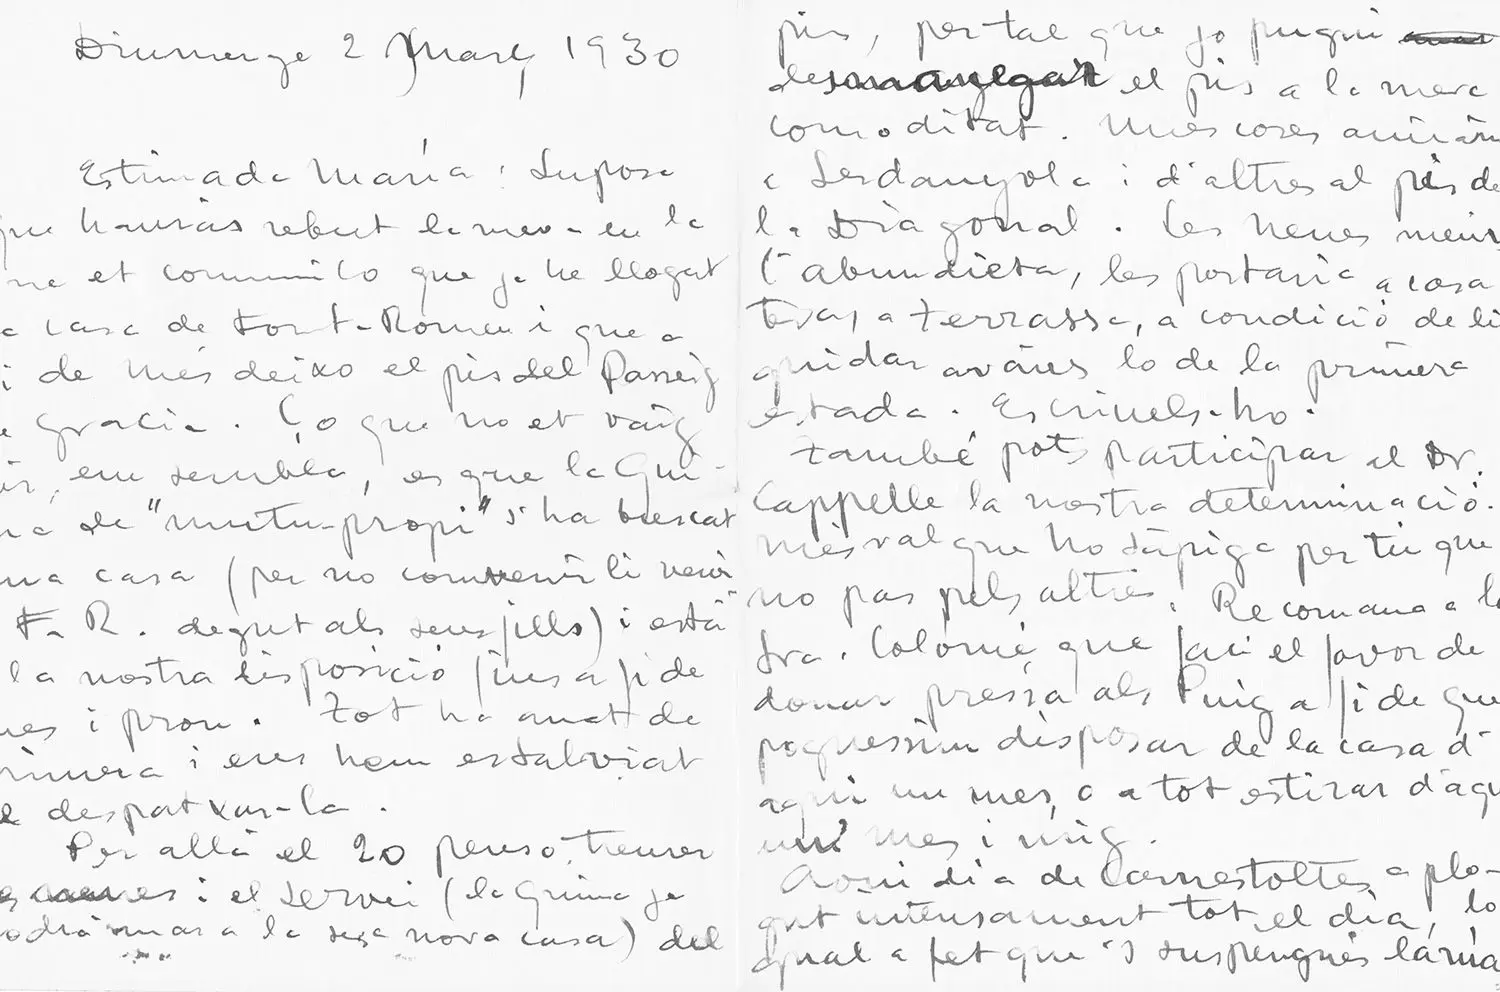 Diumenge 2 Març, 1930
Estimada María: Suposo
que hauràs rebut la meva en la
et comunico que ja he llogat
casa de Font-Romeu i que a
de més deixo el pis del Passeig
Gracia. Ço que no et vaig
em sembla, es que la Qui-
de "mutu-propi" s'ha buscat
casa (per no convenir li venir
F. R. degut als seus fills) i està
la nostra disposició fins a fi de
i prou. Tot ha anat de
i ens hem estalviat
despatxar-la.
Per allà el 20 penso treurer
i el servei (la Quima ja
a la seva nova casa) del
pis, per tal que jo pugui
desmanegar el pis a la meva
comoditat. Unes coses aniran
a Serdanyola i d'altres al pis de
la Diagonal. Les nenes
l'abundieta, les portaria a casa
teva, a Terrassa, a condició de li
quidar avans lo de la primera
estada. Escriuels-ho.
També pots participar al Dr.
Cappelle la nostra determinació.
Més val que ho sàpiga per tu que
no pas pels altres. Recomana a la
Sra. Colomé, que faci el favor de
donar pressa als Puig a fi de que
poguessim disposar de la casa d'
aqui un mes, o a tot estirar d'aqui
un mes i mig.
Avui dia de Carnestoltes, a plo-
gut intensament tot el dia, lo
qual a fet que 's suspengués la rúa